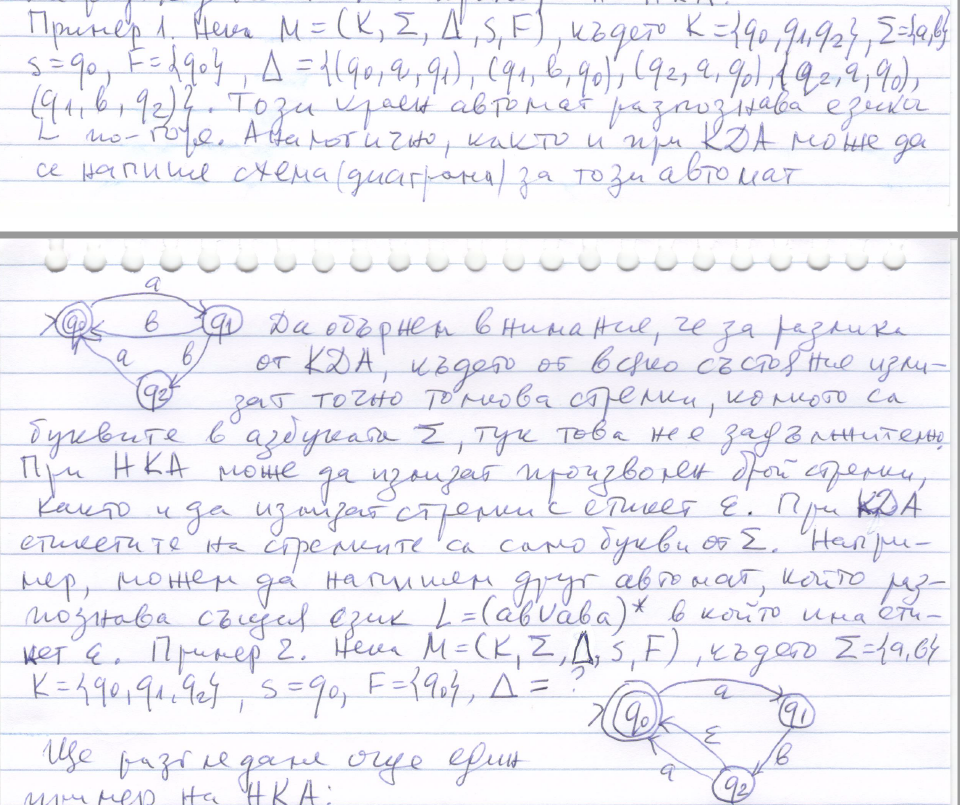 Пример 1. Нека M = (K, Σ, Δ, s, F), където K = {q0, q1, q2}, Σ = {a, b}
s = q0, F = {q0}, Δ = {(q0, a, q1), (q1, b, q0), (q2, a, q0), {q2, a, q0),
(q1, b, q2)}. Този краен автомат разпознава езика
L по-горе. Аналогично, както и при КДА може да
се напише схема (диаграма) за този автомат
a
q0 b q1 Да обърнем внимание, че за разлика
a b от КДА, където от всяко състояние изли-
q2 зат точно толкова стрелки, колкото са
буквите в азбуката Σ, тук това не е задължително.
При НКА може да излизат произволен брой стрелки,
както и да излизат стрелки с етикет ε. При КДА
етикетите на стрелките са само букви от Σ. Напри-
мер, можем да напишем друг автомат, който раз-
познава същия език L = (ab∪aba)* в който има ети-
кет ε. Пример 2. Нека M = (K, Σ, Δ, s, F), където Σ = {a, b}
K = {q0, q1, q2}, s = q0, F = {q0}, Δ = ?
a
q0 q1
ε b
a q2
Ще разгледаме още един
пример на НКА: